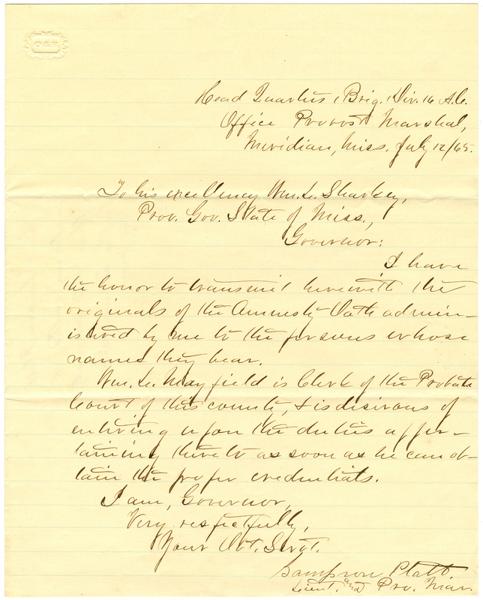 Head Quarters 1 Brig. 1 Div. 16 A.C.
Office Provost Marshal,
Meridian, Miss. July 12/65.
To his excellency Wm. L. Sharkey,
Prov. Gov. State of Miss.,
Governor:
I have
the honor to transmit herewith the
originals of the Amnesty Oath admin-
istered by me to the persons whose
names they bear.
Wm. L. Mayfield is Clerk of the Probate
Court of this county, & is desirous of
entering upon the duties apper-
taining thereto as soon as he can ob-
tain the proper credentials.
I am, Governor,
Very respectfully,
Your Obt. Servt.
Sampson Platt
Lieut. and Pro. Mar.